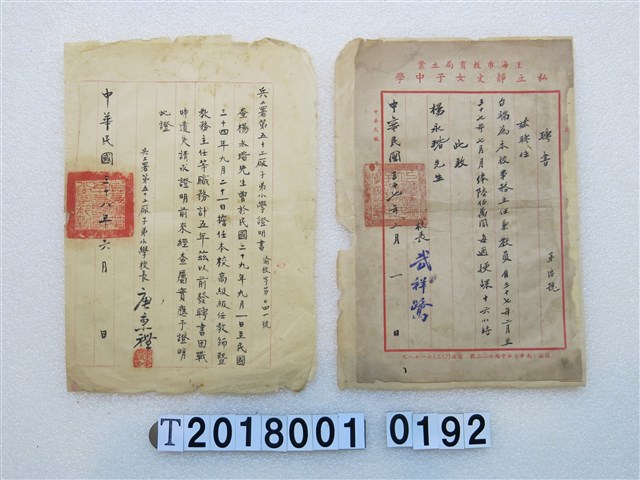 兵工署第五十二廠子弟小學證明書 渝校字第〇四一號
查楊永瑎先生曾於民國二十九年九月一日至民國
三十四年九月二十一日擔任本校高級級任教師暨
教務主任等職務計五年茲以前發聘書因戰
時遺失請求證明前來經查屬實應予證明
此證
兵工署第五十二廠子弟小學校長
中華民國三十八年六月 日
上海市教育局立案
私立靜文女子中學
聘書
茲聘任
為本校事務主任兼教員自三十七年二月至
三十七年七月
每週授課十六小時
此致
楊永瑎先生
校長 武祥
中華民國三十七年二月一日
T2018001 0192